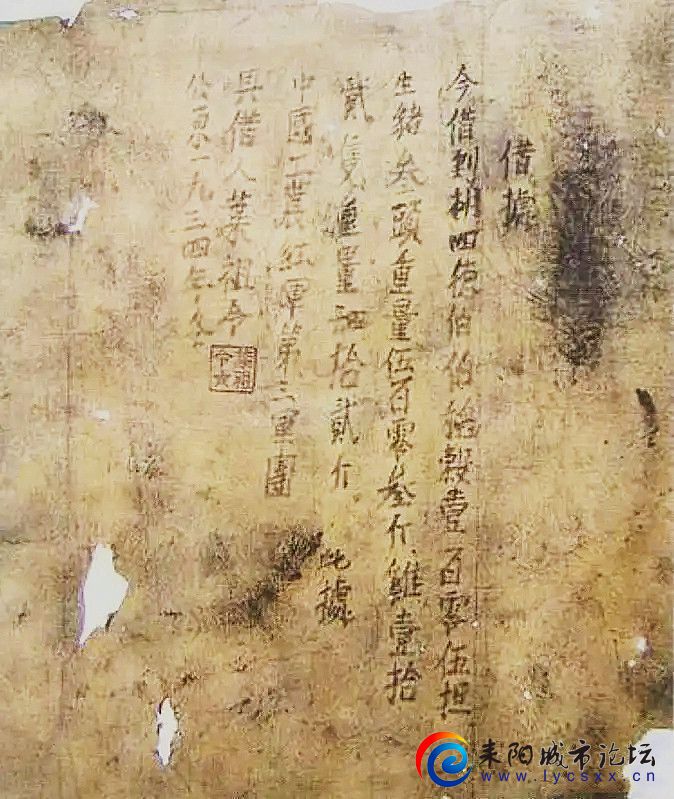 借據
今借到胡四德伯伯稻穀壹百零伍担
生豬叁頭重量伍百零叁斤雞壹拾
貳隻重量肆拾貳斤。此據
中國工農紅軍第三軍團
具借人葉祖令
公曆一九三四年
葉祖令
耒阳城市论坛
www.lycsxx.cn